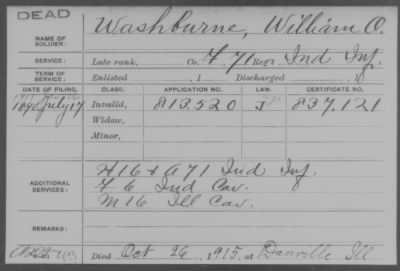 DEAD
NAME OF SOLDIER: Washburne, William O.
SERVICE: Late rank, Co. F. 71 Reg't Ind Inf.
TERM OF SERVICE: Enlisted , 1 Discharged , 1
DATE OF FILING. CLASS. APPLICATION NO. LAW. CERTIFICATE NO.
1890, July 17 Invalid, 813.520 J 837.121
Widow,
Minor,
ADDITIONAL SERVICES: H 16 & A 71 Ind Inf
F 6 Ind Cav.
M 16 Ill Cav.
REMARKS:
Died Oct 26, 1915, at Danville Ill